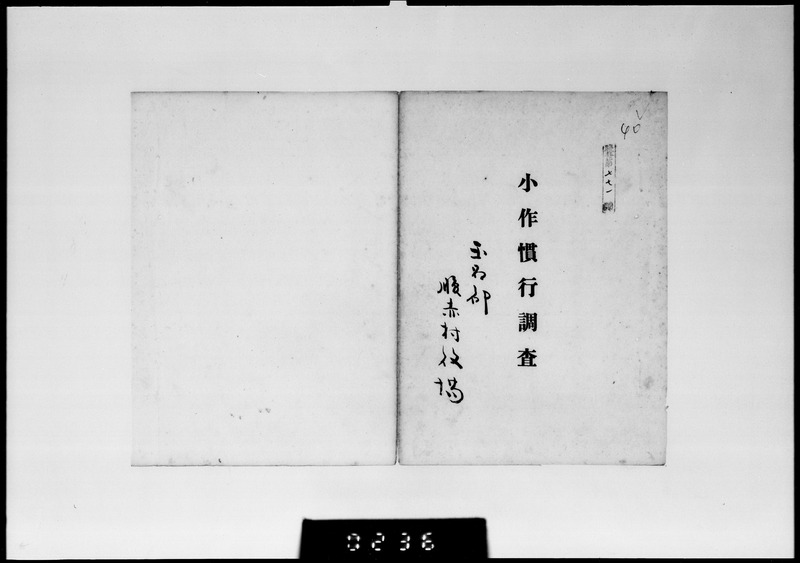 40
小作慣行調査
玉名郡
腹赤村役場
0236